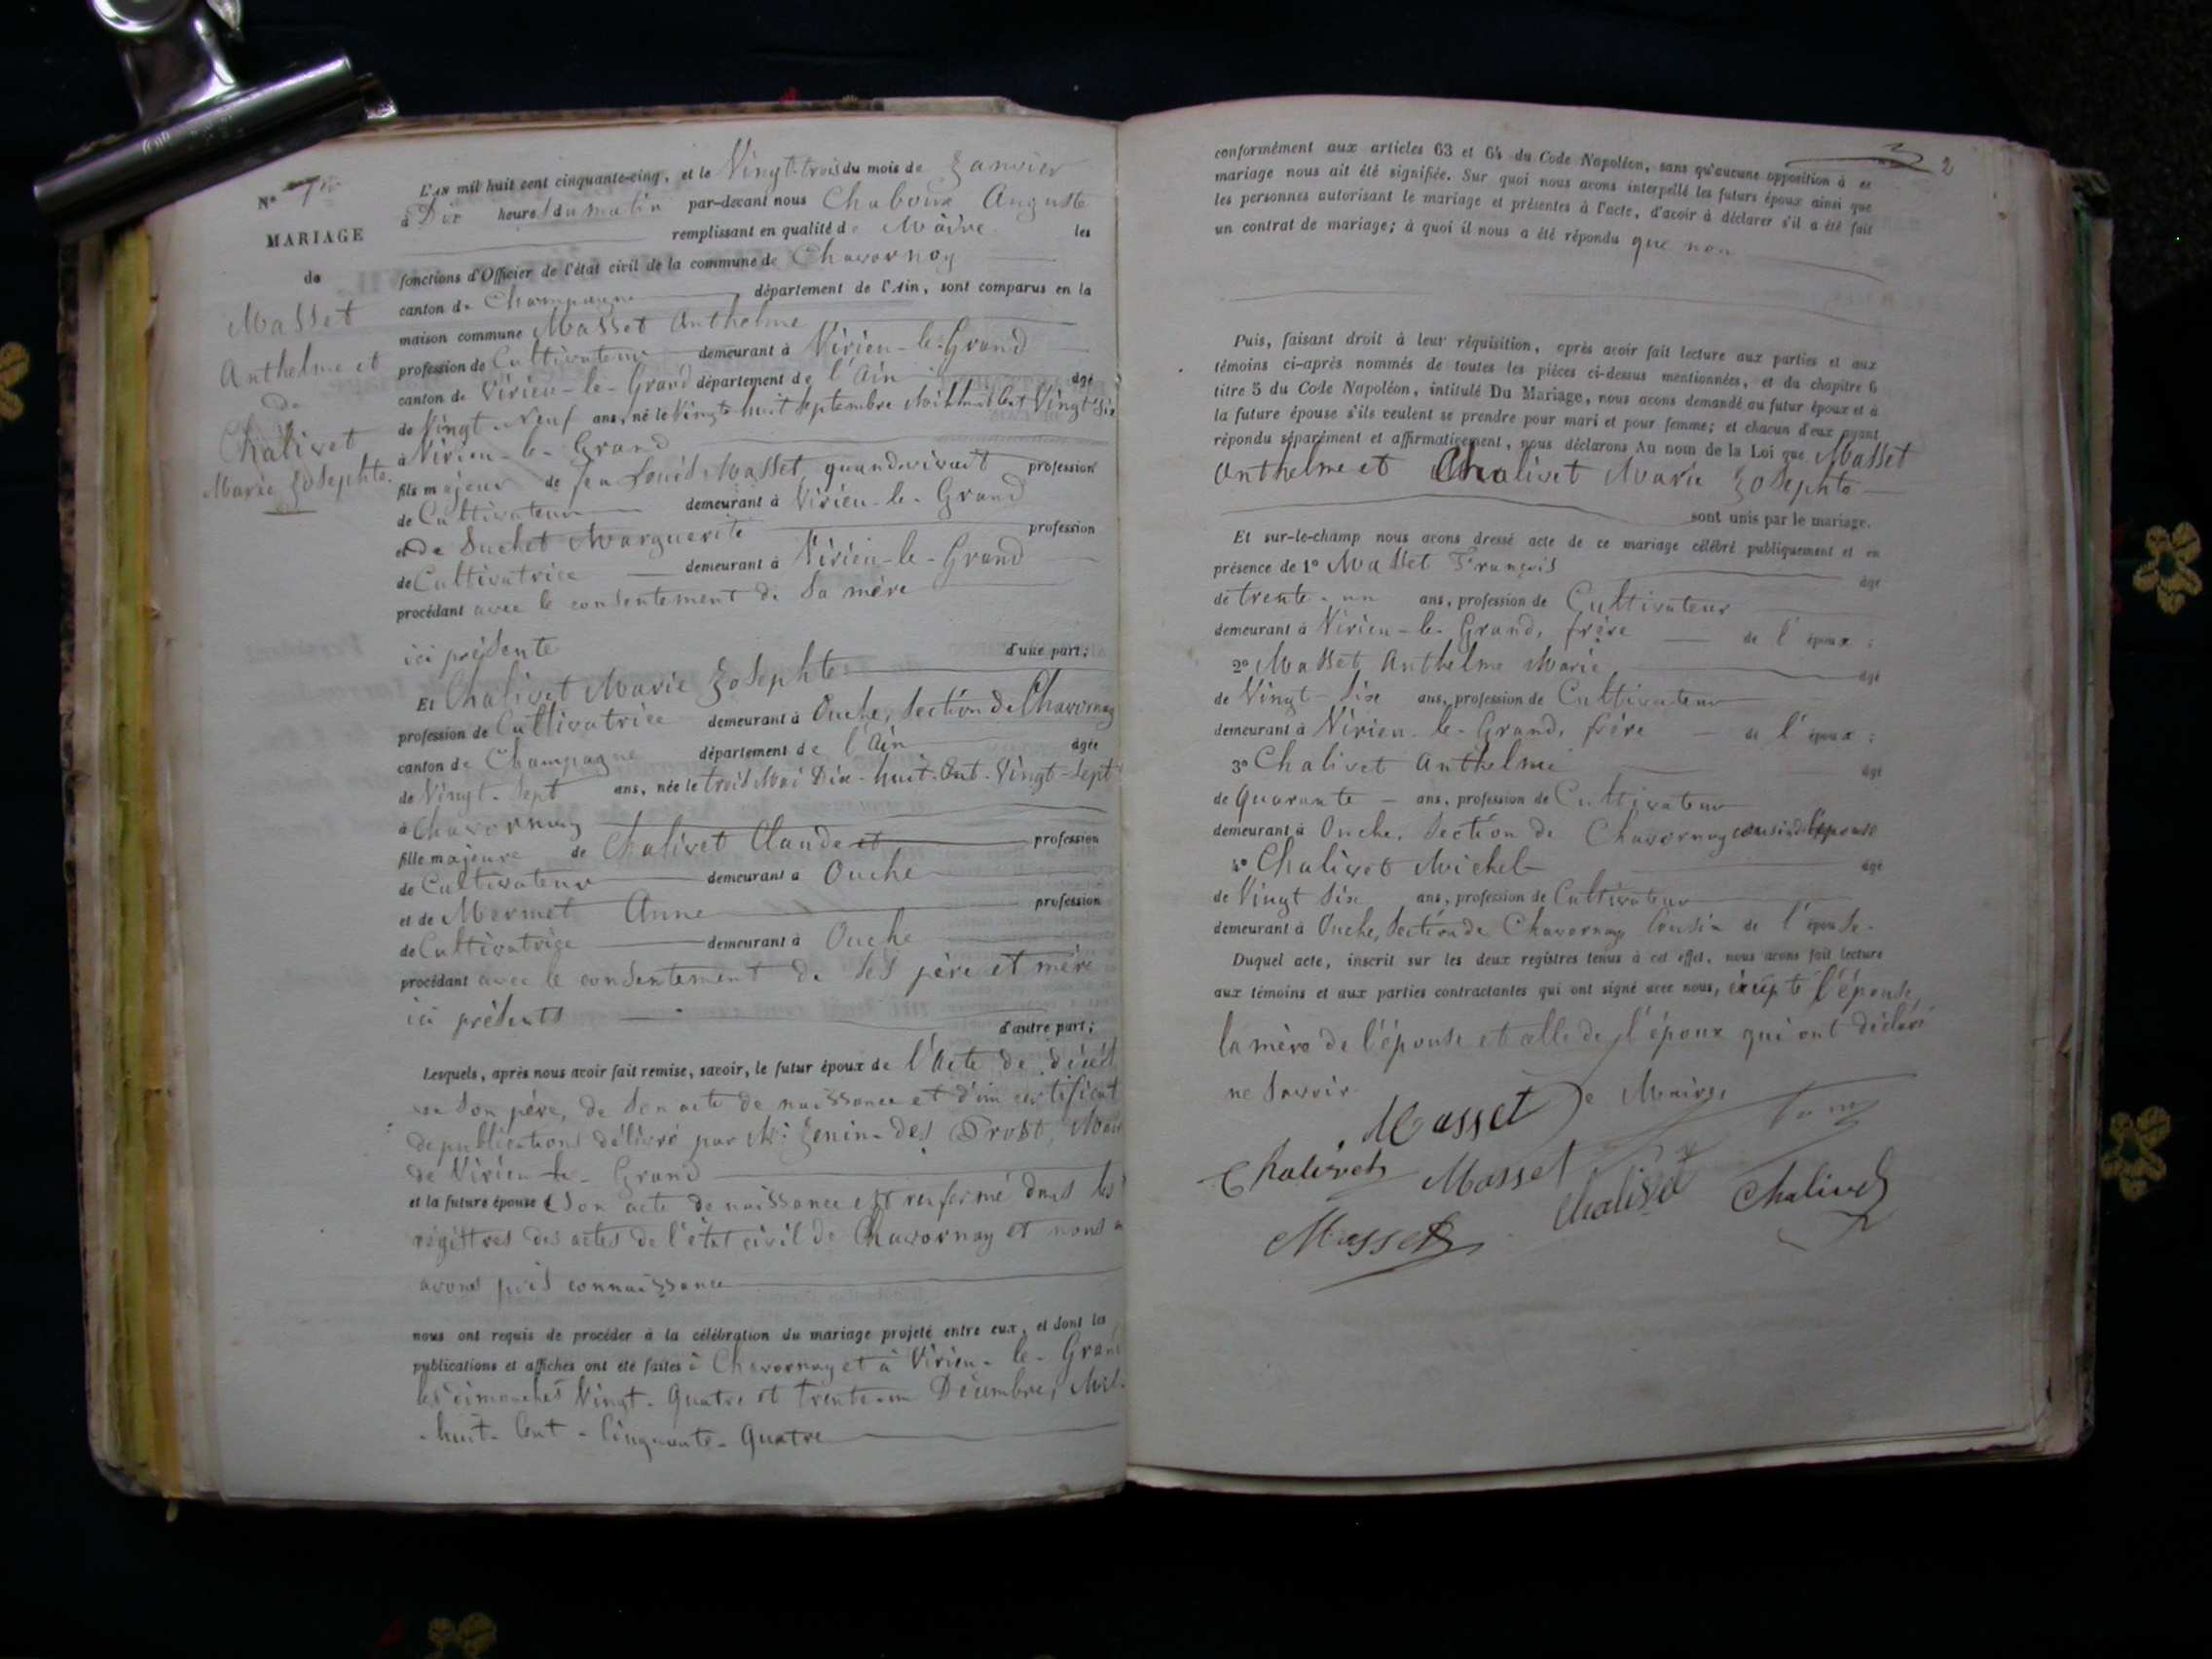 N° 1er
MARIAGE
de
Masset
Anthelme et
de
Chalivet
Marie Josephte.
L'AN mil huit cent cinquante-cinq, et le Vingt-trois du mois de Janvier
à Dix heures du matin par-devant nous Chaboux Auguste
remplissant en qualité de Maire les
fonctions d'Officier de l'état civil de la commune de Chavornay
canton de Champagne département de l'Ain, sont comparus en la
maison commune Masset Anthelme
profession de Cultivateur demeurant à Virieu-le-Grand
canton de Virieu-le-Grand département de l'Ain âgé
de Vingt-Neuf ans, né le Vingt-huit Septembre Mil huit Cent Vingt-Six
à Virieu-le-Grand
fils majeur de feu Louis Masset, quand vivait profession
de Cultivateur demeurant à Virieu-le-Grand
et de Suchet Marguerite profession
de Cultivatrice demeurant à Virieu-le-Grand
procédant avec le consentement de sa mère
ici présente d'une part;
Et Chalivet Marie Josephte
profession de Cultivatrice demeurant à Ouche, Section de Chavornay
canton de Champagne département de l'Ain âgée
de Vingt-Sept ans, née le trois Mai Dix-huit-Cent-Vingt-Sept
à Chavornay
fille majeure de Chalivet Claude et profession
de Cultivateur demeurant à Ouche
et de Mermet Anne profession
de Cultivatrice demeurant à Ouche
procédant avec le consentement de ses père et mère
ici présents d'autre part;
Lesquels, après nous avoir fait remise, savoir, le futur époux de l'acte de décès
de son père, de son acte de naissance et d'un certificat
de publications délivré par Mr. Jenin-des Prost, Maire
de Virieu-le-Grand
et la future épouse Son acte de naissance est renfermé dans les
régistres des actes de l'état civil de Chavornay et nous en
avons pris connaissance
nous ont requis de procéder à la célébration du mariage projeté entre eux, et dont les
publications et affiches ont été faites à Chavornay et à Virieu-le-Grand
les dimanches Vingt-Quatre et trente-un Décembre, Mil-
-huit-Cent-Cinquante-Quatre
2
conformément aux articles 63 et 64 du Code Napoléon, sans qu'aucune opposition à ce
mariage nous ait été signifiée. Sur quoi nous avons interpellé les futurs époux ainsi que
les personnes autorisant le mariage et présentes à l'acte, d'avoir à déclarer s'il a été fait
un contrat de mariage; à quoi il nous a été répondu que non
Puis, faisant droit à leur réquisition, après avoir fait lecture aux parties et aux
témoins ci-après nommés de toutes les pièces ci-dessus mentionnées, et du chapitre 6
titre 5 du Code Napoléon, intitulé Du Mariage, nous avons demandé au futur époux et à
la future épouse s'ils veulent se prendre pour mari et pour femme; et chacun d'eux ayant
répondu séparément et affirmativement, nous déclarons Au nom de la Loi que Masset
Anthelme et Chalivet Marie Josephte
sont unis par le mariage.
Et sur-le-champ nous avons dressé acte de ce mariage célébré publiquement et en
présence de 1° Masset François âgé
de trente-un ans, profession de Cultivateur
demeurant à Virieu-le-Grand, frère de l'époux;
2° Masset Anthelme Marie âgé
de Vingt-Six ans, profession de Cultivateur
demeurant à Virieu-le-Grand, frère de l'époux;
3° Chalivet Anthelme âgé
de quarante ans, profession de Cultivateur
demeurant à Ouche, Section de Chavornay cousin de l'épouse
4° Chalivet Michel âgé
de Vingt Six ans, profession de Cultivateur
demeurant à Ouche, Section de Chavornay Cousin de l'épouse.
Duquel acte, inscrit sur les deux registres tenus à cet effet, nous avons fait lecture
aux témoins et aux parties contractantes qui ont signé avec nous, excepté l'épouse,
la mère de l'épouse et celle de l'époux qui ont déclaré
ne savoir.
Masset Le Maire,
Chalivet Masset Chalivet Chalivet
Masset